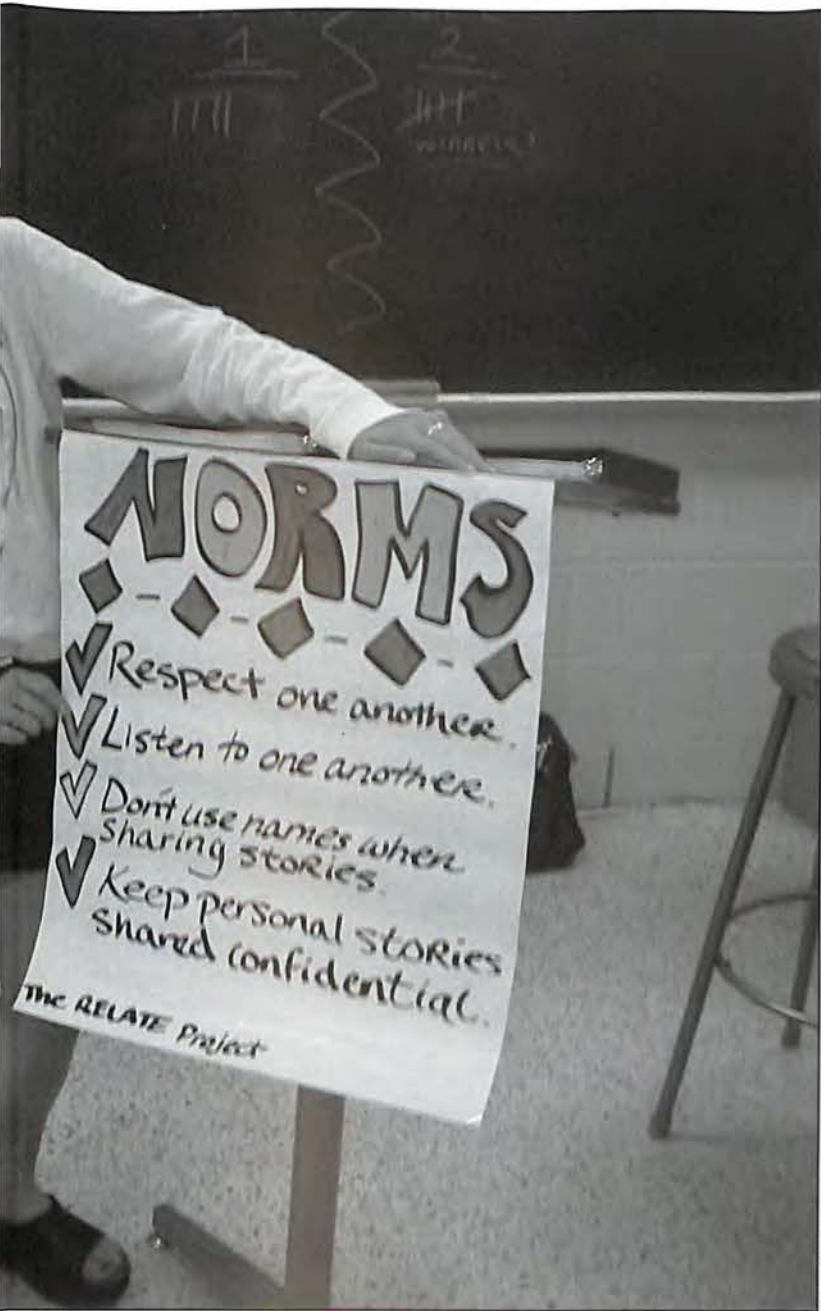 1
2
winner!
NORMS
Respect one another.
Listen to one another.
Don't use names when
sharing stories.
Keep personal stories
shared confidential.
The RELATE Project